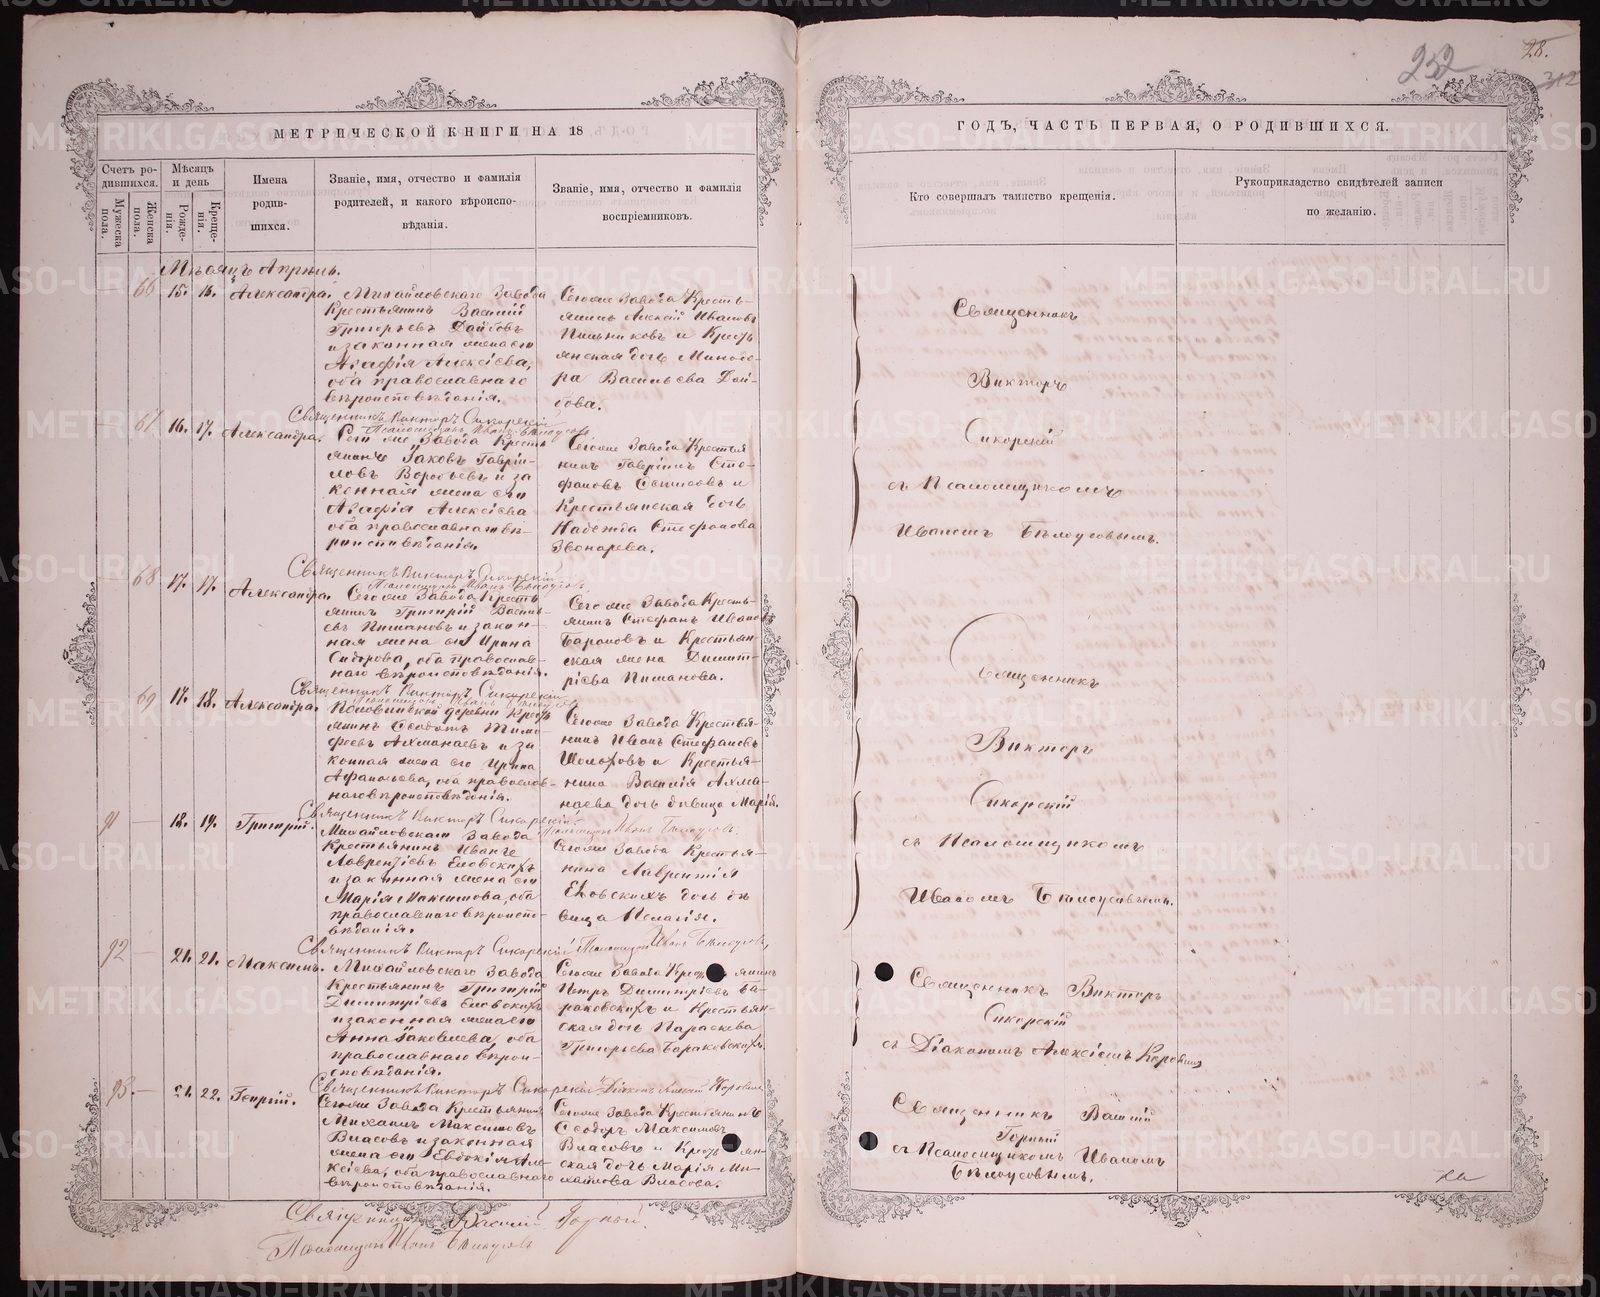 252
28.
312
МЕТРИЧЕСКОЙ КНИГИ НА 18
Счетъ ро-
дившихся.
Мужеска
пола.
Женска
пола.
Мѣсяцъ
и день
Рожде-
нія.
Креще-
нія.
Имена
родив-
шихся.
Званіе, имя, отчество и фамилія
родителей, и какого вѣроиспо-
вѣданія.
Званіе, имя, отчество и фамилія
воспріемниковъ.
Мѣсяцъ Апрѣль.
66 15. 15. Александра.
Михайловскаго Завода
Крестьянинъ Василій
Григорьевъ
и законная жена его
Агафія Алексѣева,
оба православнаго
вѣроисповѣданія.
Сегоже Завода Кресть-
янинъ Алексѣй Ивановъ
Пшеничниковъ и Кресть
янская дочь Миндо-
ра Васильева
Священникъ Викторъ Сикорскій
Псаломщикъ Иванъ Бѣлоусовъ
67 16. 17. Александра.
Сего же Завода Кресть
янинъ Іаковъ Гаврі-
ловъ Воробьевъ и за
конная жена его
Агафія Алексѣева
оба православнаго вѣ-
роисповѣданія.
Сегоже Завода Крестья
нинъ Гавріилъ Сте-
фановъ и
Крестьянская дочь
Надежда Стефанова
Звонарева.
Священникъ Викторъ Сикорскій
Псаломщикъ Иванъ Бѣлоусовъ
68 17. 17. Александра.
Сегоже Завода Кресть
янинъ Григорій Василь-
евъ Пимановъ и закон-
ная жена его Ирина
Сидорова, оба православ-
наго вѣроисповѣданія.
Сегоже Завода Кресть-
янинъ Стефанъ Ивановъ
Барановъ и Крестьян-
ская жена Димит-
ріева Пиманова.
Священникъ Викторъ Сикорскій
Псаломщикъ Иванъ Бѣлоусовъ
69 17. 18. Александра.
Половинной деревни Кресть
янинъ Ѳеодотъ Тимо-
феевъ Ахманаевъ и за
конная жена его Ирина
Афанасьева, оба православ-
наго вѣроисповѣданія.
Сегоже Завода Крестья-
нинъ Иванъ Стефановъ
Шолоховъ и Крестья-
нина Василія Ахма-
наева дочь дѣвица Марія.
Священникъ Викторъ Сикорскій
Псаломщикъ Иванъ Бѣлоусовъ.
91 — 18. 19. Григорій.
Михайловскаго Завода
Крестьянинъ Иванъ
Лаврентіевъ Еловскихъ
и законная жена его
Марія Максимова, оба
православнаго вѣроиспо-
вѣданія.
Сегоже Завода Крестья-
нина Лаврентія
Еловскихъ дочь дѣ
вица Пелагія.
Священникъ Викторъ Сикорскій Псаломщикъ Иванъ Бѣлоусовъ,
92 — 21. 21. Максимъ.
Михайловскаго Завода
Крестьянинъ Григорій
Димитріевъ Еловскихъ
и законная жена его
Анна Іаковлева, оба
православнаго вѣрои-
сповѣданія.
Сегоже Завода Крестьянинъ
Петръ Димитріевъ Ба-
раковскихъ и Крестьян-
ская дочь Параскева
Григорьева Бараковскихъ.
Священникъ Викторъ Сикорскій Діаконъ Алексій Коровинъ
93. — 21. 22. Георгій.
Сегоже Завода Крестьянинъ
Михаилъ Максимовъ
Власовъ и законная
жена его Евдокія Але-
ксѣева, оба православнаго
вѣроисповѣданія.
Сегоже Завода Крестьянинъ
Ѳеодоръ Максимовъ
Власовъ и Крестьян-
ская дочь Марія Ми-
хаилова Власова.
Священникъ Василій Горный.
Псаломщикъ Иванъ Бѣлоусовъ
ГОДЪ, ЧАСТЬ ПЕРВАЯ, О РОДИВШИХСЯ.
Кто совершалъ таинство крещенія.
Рукоприкладство свидѣтелей записи
по желанію.
Священникъ
Викторъ
Сикорскій
съ Псаломщикомъ
Иваномъ Бѣлоусовымъ.
Священникъ
Викторъ
Сикорскій
съ Псаломщикомъ
Иваномъ Бѣлоусовымъ.
Священникъ Викторъ
Сикорскій
съ Діакономъ Алексіемъ Коровинымъ
Священникъ Василій
Горный
съ Псаломщикомъ Иваномъ
Бѣлоусовымъ.
METRIKI.GASO-URAL.RU